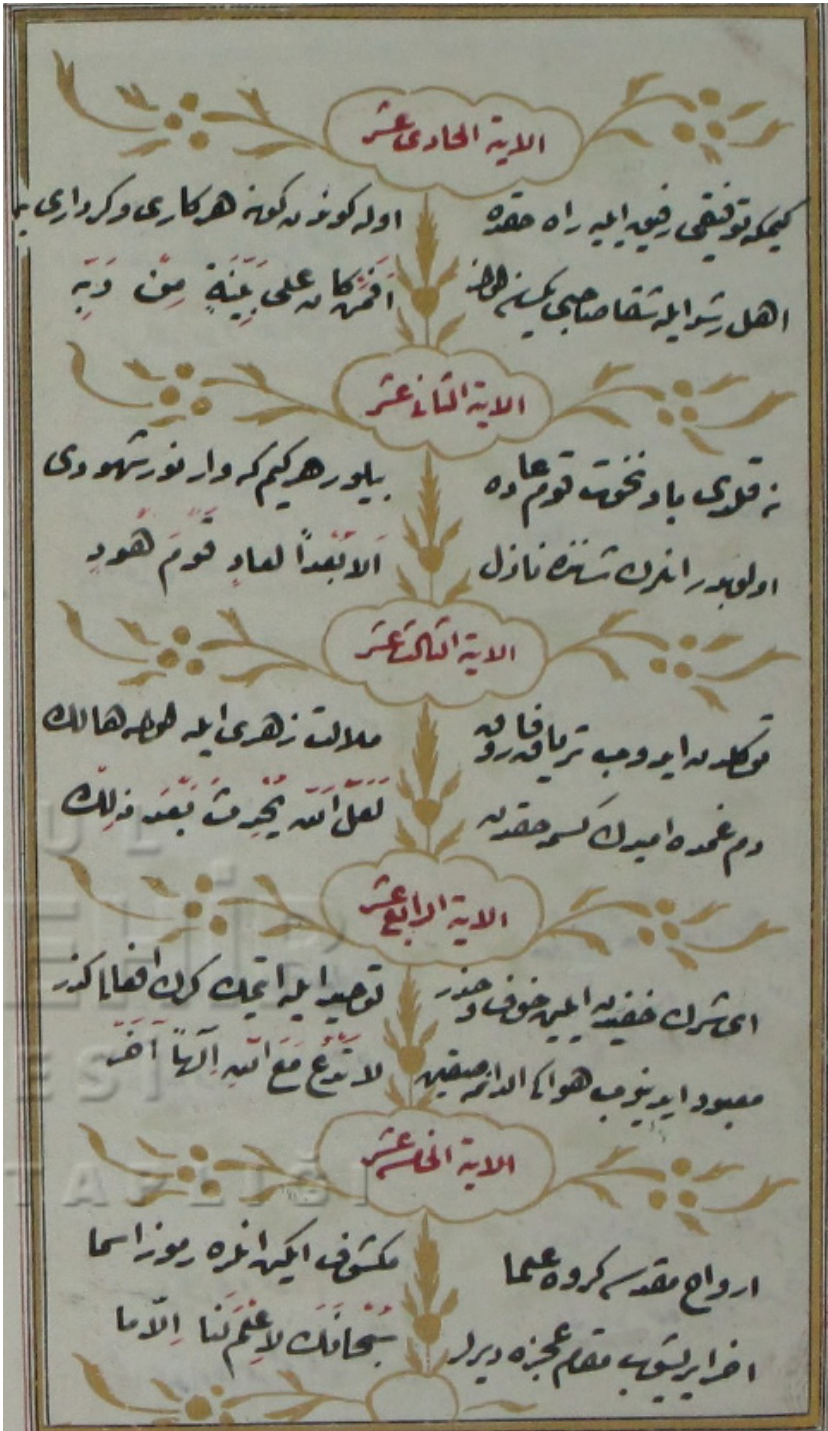 الاية الحادى عشر
كيمكه توفيقى رفيق ايليه راه حقده
اوله كوندن كونه هر كارى و كردارى به
اهل رشد ايله شقا صاحبى يكسان
افمن كان على بينة من ربه
الاية الثانى عشر
نه قلدى باد نخوت قوم عاده
بيلور هر كيم كه وار نور شهودى
اولوبدر انلرك شاننده نازل
الا بعدا لعاد قوم هود
الاية الثالث عشر
توكلدن ايدوب ترياق فاروق
ملالت زهرى ايله اولمه هالك
دم غمده اميدك كسمه حقدن
لعل الله يحدث بعد ذلك
الاية الرابع عشر
اى شرك خفيدن ايلين خوف و حذر
توحيد ايله ايتمك كرك افعالا كذر
معبود ايدينوب هواكى الدانمه صقين
لا تدع مع الله الها آخر
الاية الخامس عشر
ارواح مقدسه كروه علما
مكشوف ايكن انلره رموز اسما
اخر ايريشوب مقام عجزه ديرلر
سبحانك لا علم لنا الا ما